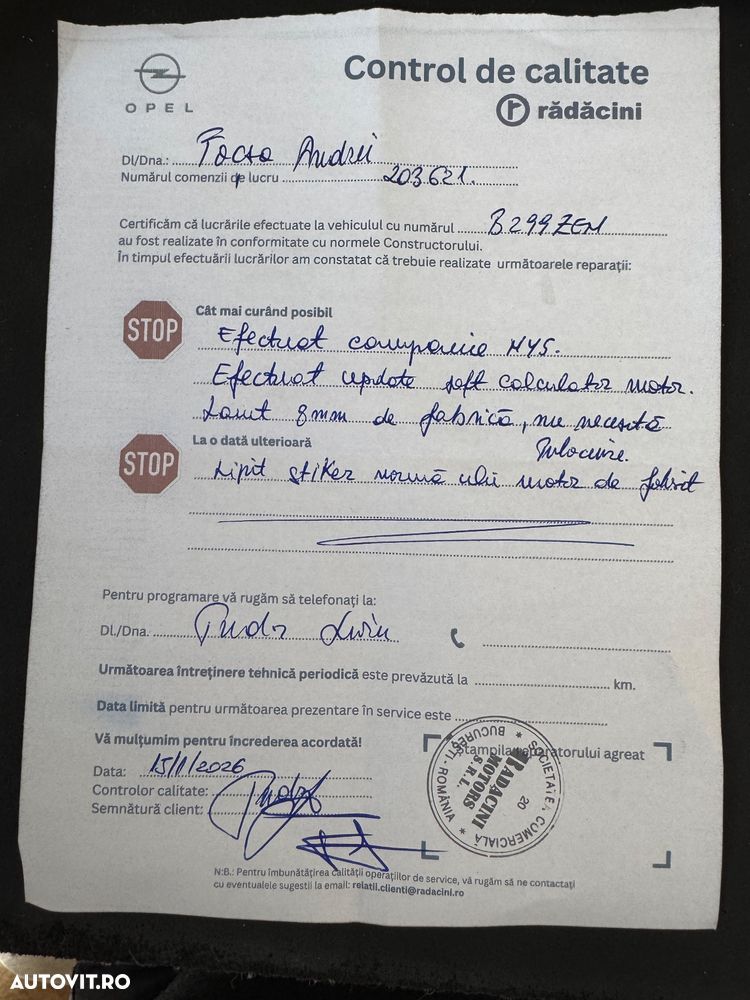 OPEL
Control de calitate
rădăcini
Dl/Dna.: Focsa Andrei
Numărul comenzii de lucru 203.621.
Certificăm că lucrările efectuate la vehiculul cu numărul B 299 ZEM
au fost realizate în conformitate cu normele Constructorului.
În timpul efectuării lucrărilor am constatat că trebuie realizate următoarele reparații:
STOP
Cât mai curând posibil
Efectuat campanie
Efectuat update soft calculator motor.
Lant 8mm de fabrică, nu necesită
înlocuire.
STOP
La o dată ulterioară
Lipit stiker normă ulei motor de
Pentru programare vă rugăm să telefonați la:
Dl./Dna. Tudor Liviu
Următoarea întreținere tehnică periodică este prevăzută la km.
Data limită pentru următoarea prezentare în service este
Vă mulțumim pentru încrederea acordată!
Ștampila reparatorului agreat
Data: 15/1/2026
Controlor calitate:
Semnătură client:
SOCIETATEA COMERCIALĂ * BUCUREȘTI - ROMÂNIA *
RADACINI
MOTORS
S.R.L.
20
N.B.: Pentru îmbunătățirea calității operațiilor de service, vă rugăm să ne contactați
cu eventualele sugestii la email: relatii.clienti@radacini.ro
AUTOVIT.RO